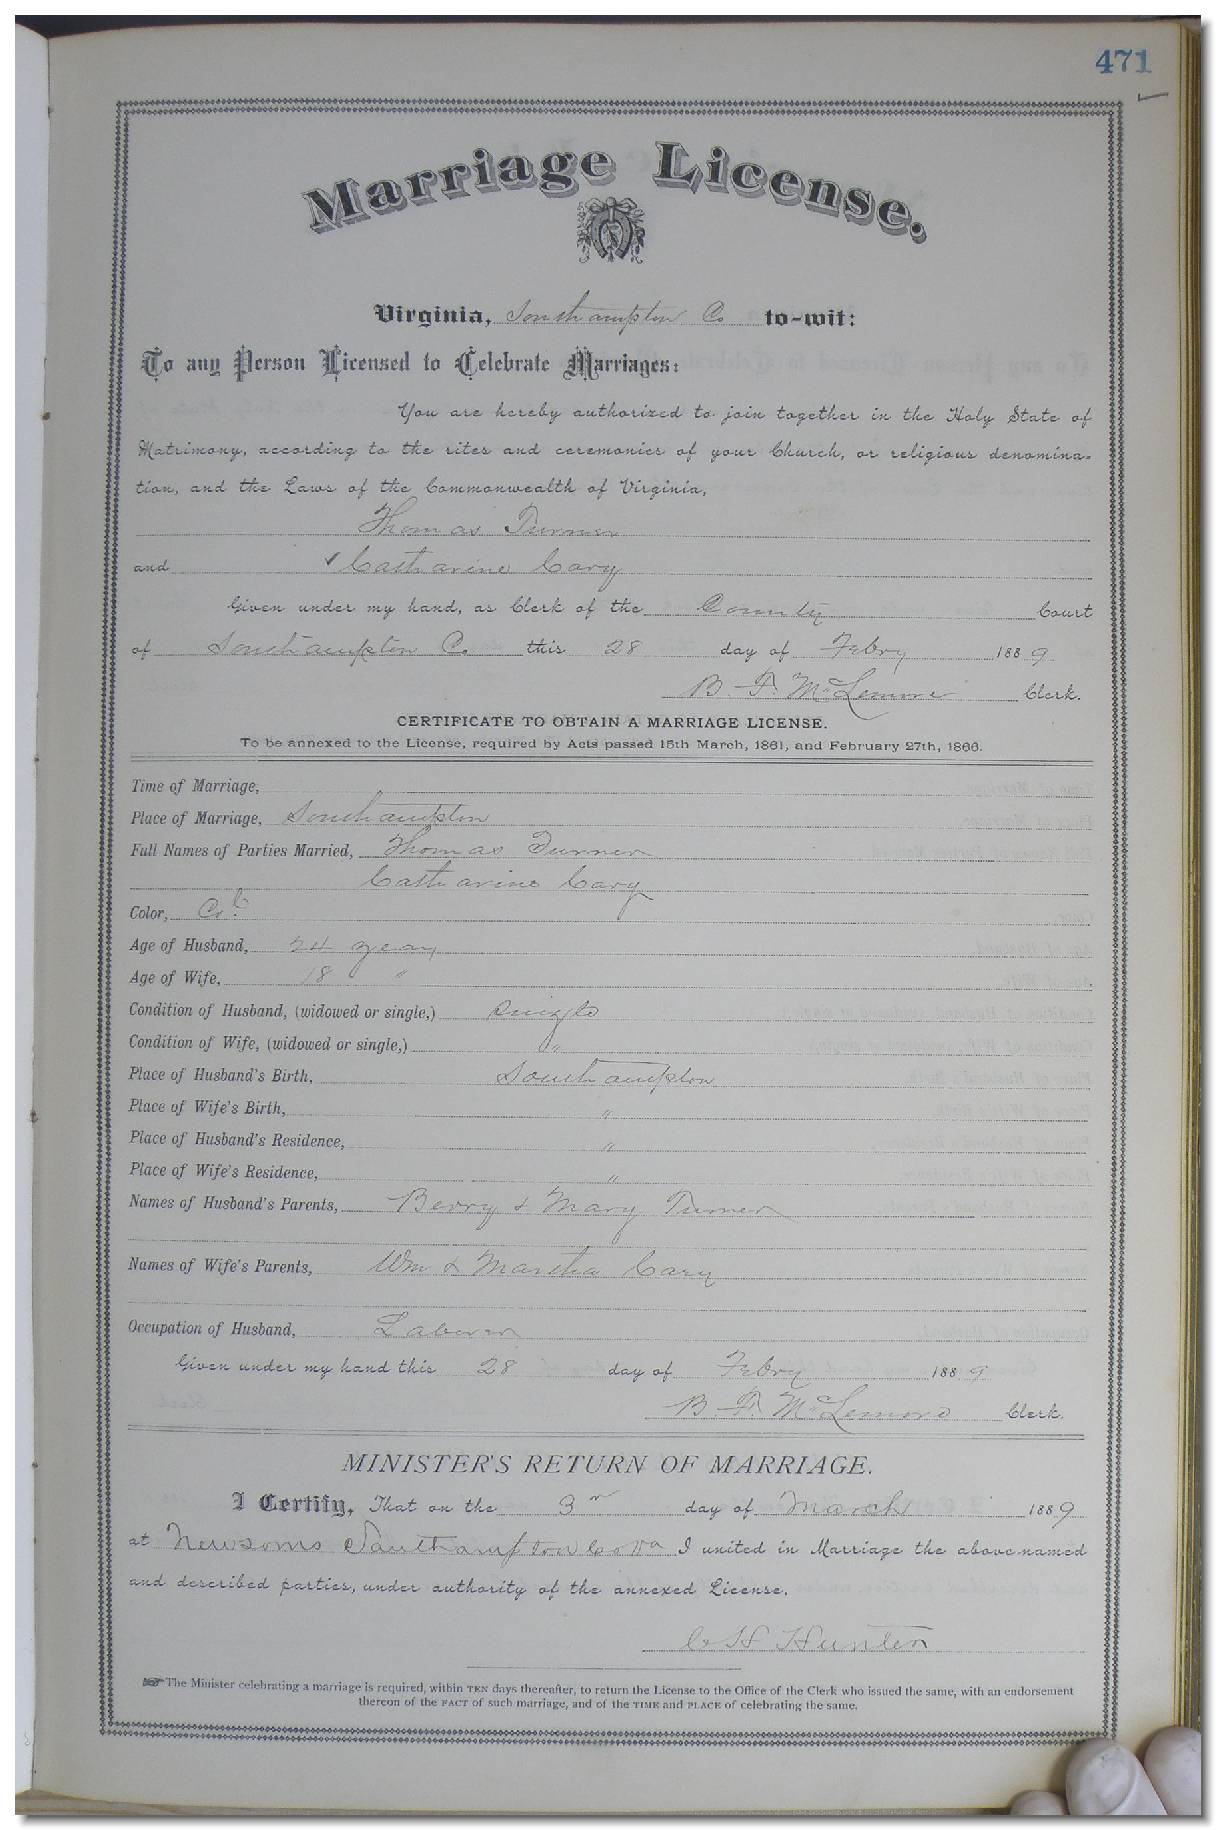 471
Marriage License.
Virginia, Southampton Co to-wit:
To any Person Licensed to Celebrate Marriages:
You are hereby authorized to join together in the Holy State of
Matrimony, according to the rites and ceremonies of your Church, or religious denomina-
tion, and the Laws of the Commonwealth of Virginia,
Thomas Turner
and Catharine Cary
Given under my hand, as Clerk of the County Court
of Southampton Co this 28 day of Febry 1889
B. F. McLemore Clerk.
CERTIFICATE TO OBTAIN A MARRIAGE LICENSE.
To be annexed to the License, required by Acts passed 15th March, 1861, and February 27th, 1866.
Time of Marriage,
Place of Marriage, Southampton
Full Names of Parties Married, Thomas Turner
Catharine Cary
Color, Col
Age of Husband, 24 years
Age of Wife, 18 "
Condition of Husband, (widowed or single,) Single
Condition of Wife, (widowed or single,) "
Place of Husband's Birth, Southampton
Place of Wife's Birth, "
Place of Husband's Residence, "
Place of Wife's Residence, "
Names of Husband's Parents, Berry & Mary Turner
Names of Wife's Parents, Wm & Martha Cary
Occupation of Husband, Laborer
Given under my hand this 28 day of Febry 1889
B. F. McLemore Clerk.
MINISTER'S RETURN OF MARRIAGE.
I Certify, That on the 3 day of March 1889
at Newsoms Southampton Co Va I united in Marriage the above-named
and described parties, under authority of the annexed License.
C H Hunter
The Minister celebrating a marriage is required, within TEN days thereafter, to return the License to the Office of the Clerk who issued the same, with an endorsement
thereon of the FACT of such marriage, and of the TIME and PLACE of celebrating the same.